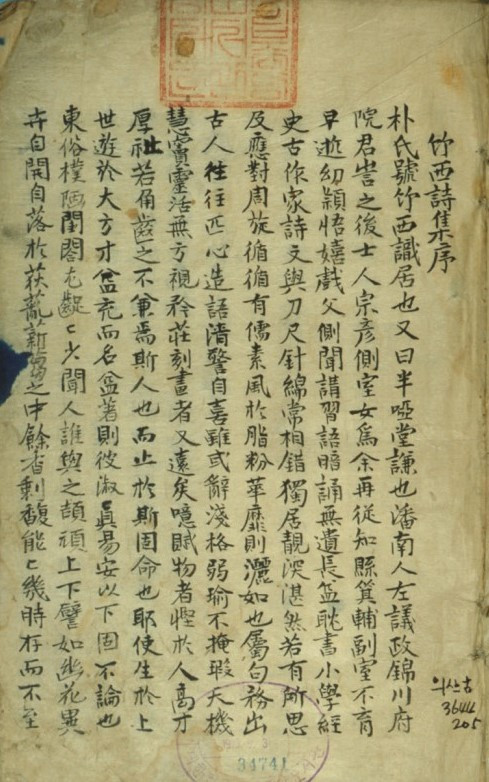 竹西詩集序
朴氏號竹西識居也又曰半啞堂謙也潘南人左議政錦川府
院君訔之後士人宗彦側室女爲余再從知縣箕輔副室不育
早逝幼穎悟嬉戲父側聞講習語暗誦無遺長益耽書小學經
史古作家詩文與刀尺針綿常相錯獨居靚深湛然若有所思
及應對周旋循循有儒素風於脂粉華靡則灑如也屬句務出
古人往往匹心造語淸警自喜雖或辭淺格弱瑜不掩瑕天機
慧竇靈活無方視矜莊刻畫者又遠矣噫賦物者慳於人高才
厚祉若角齒之不兼焉斯人也而止於斯固命也耶使生於上
世遊於大方才益充而名益著則彼淑眞易安以下固不論也
東俗樸陋閨閤尤齪〻少聞人誰與之頡頏上下譬如幽花異
卉自開自落於荻薍薪之中餘香剩馥能〻幾時存而不至
의산古
3644
205
34741